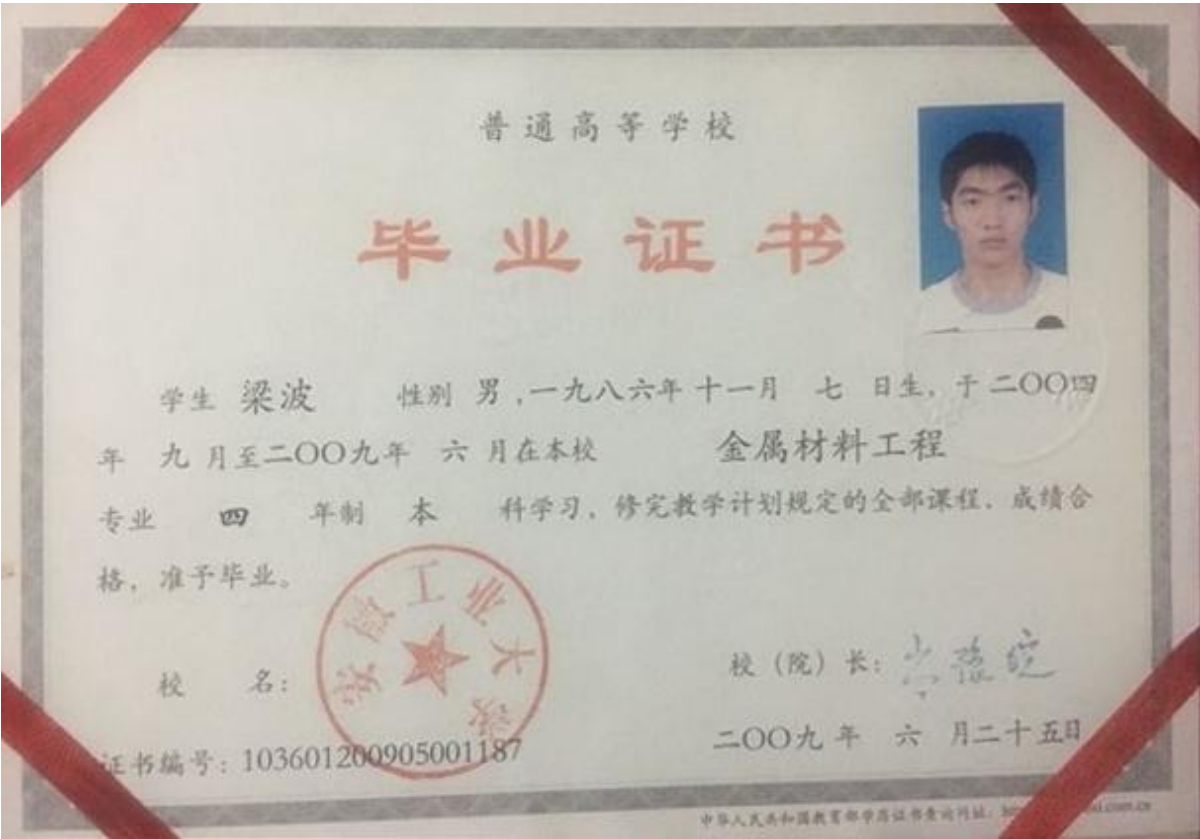 普通高等学校
毕业证书
学生 梁波 性别 男,一九八六年十一月 七 日生,于二〇〇四
年 九 月至二〇〇九年 六 月在本校 金属材料工程
专业 四 年制 本 科学习,修完教学计划规定的全部课程,成绩合
格,准予毕业。
安徽工业大学
校 名:
校(院)长:
证书编号:103601200905001187
二〇〇九年 六 月二十五日
中华人民共和国教育部学历证书查询网址: